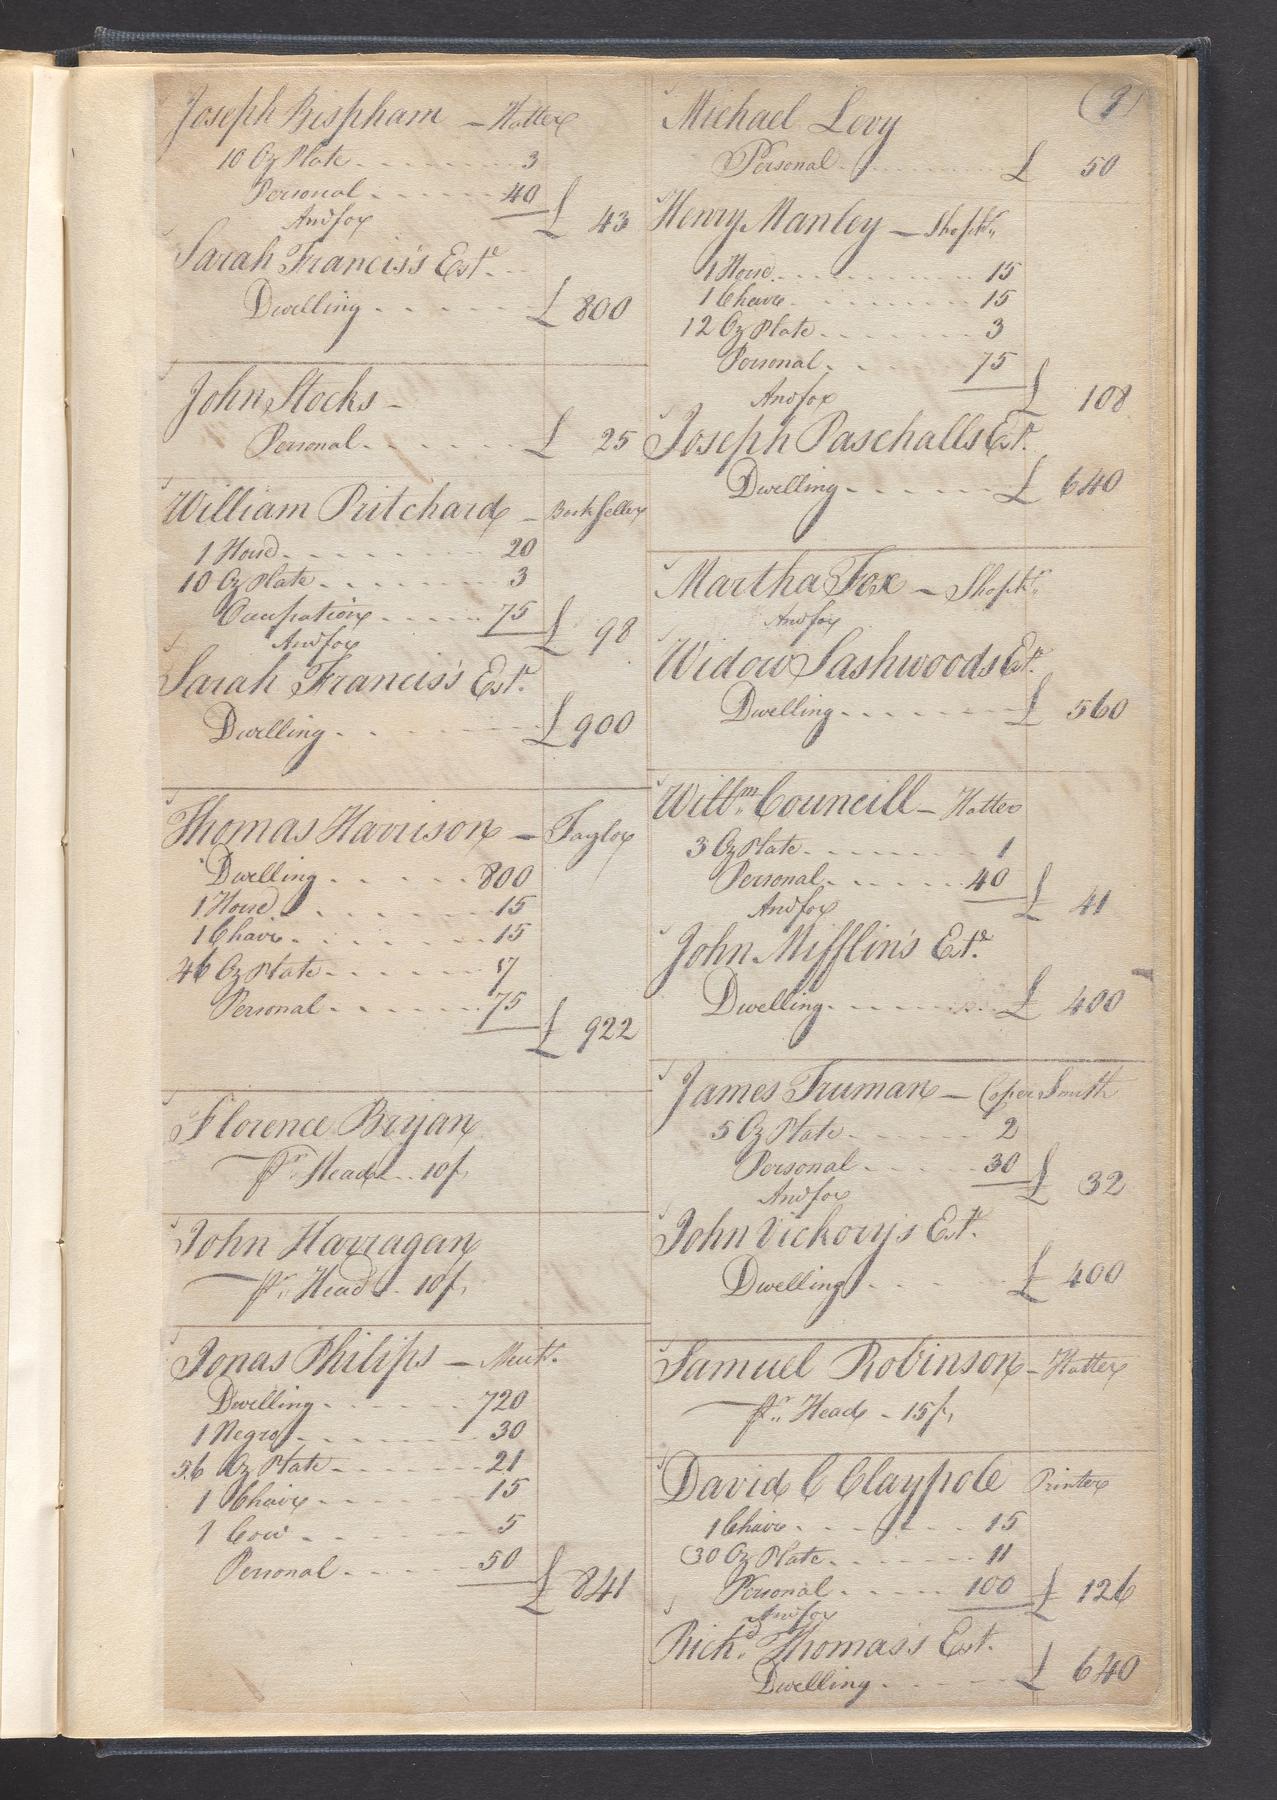 Joseph Bispham - Hatter
10 Oz Plate 3
Personal 40
And for £ 43
Sarah Francis's Este
Dwelling £ 800
John Stocks -
Personal £ 25
William Pritchard - Bookseller
1 Horse 20
10 Oz Plate 3
Occupation 75
And for £ 98
Sarah Francis's Este
Dwelling £ 900
Thomas Harrison - Taylor
Dwelling 800
1 Horse 15
1 Chair 15
46 Oz Plate 17
Personal 75
£ 922
Florence Bryan
pr. Head 10/
John Harragan
pr. Head 10/
Jonas Philips - Mercht.
Dwelling 720
1 Negro 30
56 Oz Plate 21
1 Chair 15
1 Cow 5
Personal 50
£ 841
(9)
Michael Levy
Personal £ 50
Henry Manley - Shopkr.
1 Horse 15
1 Chair 15
12 Oz Plate 3
Personal 75
And for £ 108
Joseph Paschalls Este
Dwelling £ 640
Martha Fox - Shopkr.
And for
Widow Sashwoods Este
Dwelling £ 560
Willm. Councill - Hatter
3 Oz Plate 1
Personal 40
And for £ 41
John Mifflin's Este
Dwelling £ 400
James Truman - Coper Smith
5 Oz Plate 2
Personal 30
And for £ 32
John Vickory's Este
Dwelling £ 400
Samuel Robinson - Hatter
pr. Head - 15/
David C Claypole Printer
1 Chair 15
30 Oz Plate 11
Personal 100 £ 126
And for
Richd. Thomas's Est.
Dwelling £ 640